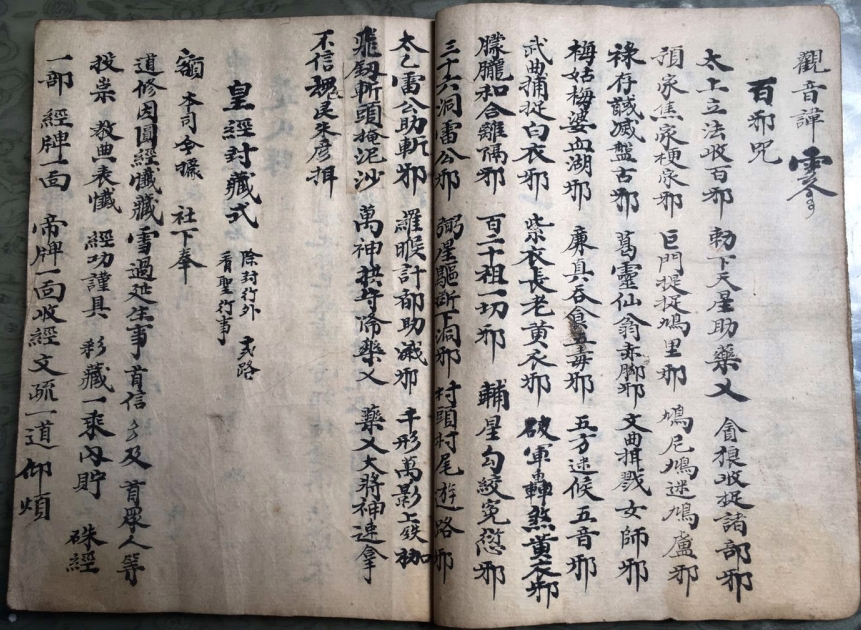 觀音諱
百邪咒
太上立法收百邪 勅下天星助藥乂 貪狼收捉諸部邪
項家焦家梗家邪 巨門捉捉鳩里邪 鳩尼鳩迷鳩盧邪
祿存誠滅盤古邪 葛靈仙翁赤腳邪 文曲揖戮女師邪
梅姑梅婆血湖邪 廉真吞食五毒邪 五方迷候五音邪
武曲捕捉白衣邪 紫衣長老黃衣邪 破軍轟煞黃衣邪
朦朧和合離隔邪 百二十祖一切邪 輔星勾絞冤愆邪
三十六洞雷公邪 弼星驅斷下洞邪 村頭村尾遊路邪
太乙雷公助斬邪 羅睺計都助滅邪 千形萬影上鉄枷
飛劔斬頭掩泥沙 萬神拱守降藥乂 藥乂大將神速拿
不信 朱彦揖
皇經封藏式 除封行外 式路
看聖行事
額 本司今據 社下奉
道修因圓經懺藏雪過延生事首信 及首眾人等
投祟 教典表懺 經功謹具 彩藏一乘內貯 硃經
一部 經牌一面 帝牌一面收經文疏一道仰煩